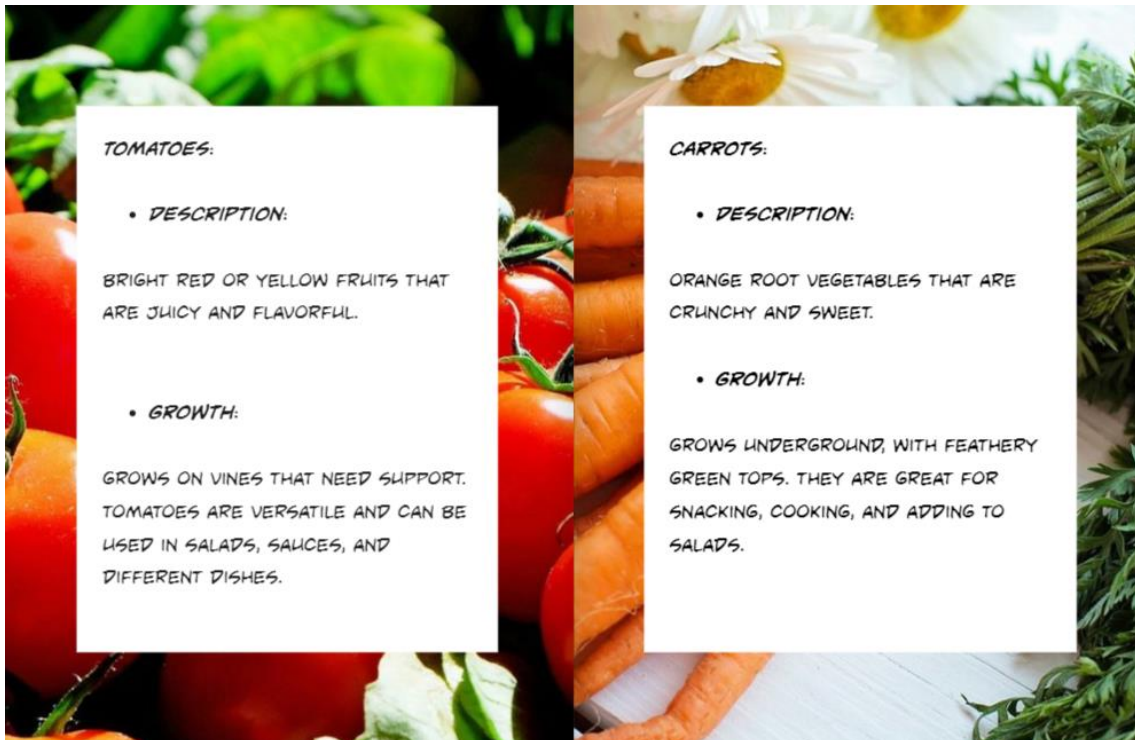 TOMATOES:
• DESCRIPTION:
BRIGHT RED OR YELLOW FRUITS THAT
ARE JUICY AND FLAVORFUL.
• GROWTH:
GROWS ON VINES THAT NEED SUPPORT.
TOMATOES ARE VERSATILE AND CAN BE
USED IN SALADS, SAUCES, AND
DIFFERENT DISHES.
CARROTS:
• DESCRIPTION:
ORANGE ROOT VEGETABLES THAT ARE
CRUNCHY AND SWEET.
• GROWTH:
GROWS UNDERGROUND, WITH FEATHERY
GREEN TOPS. THEY ARE GREAT FOR
SNACKING, COOKING, AND ADDING TO
SALADS.